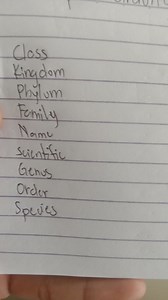 Class
Kingdom
Phylum
Family
Name
scientific
Genus
Order
Species